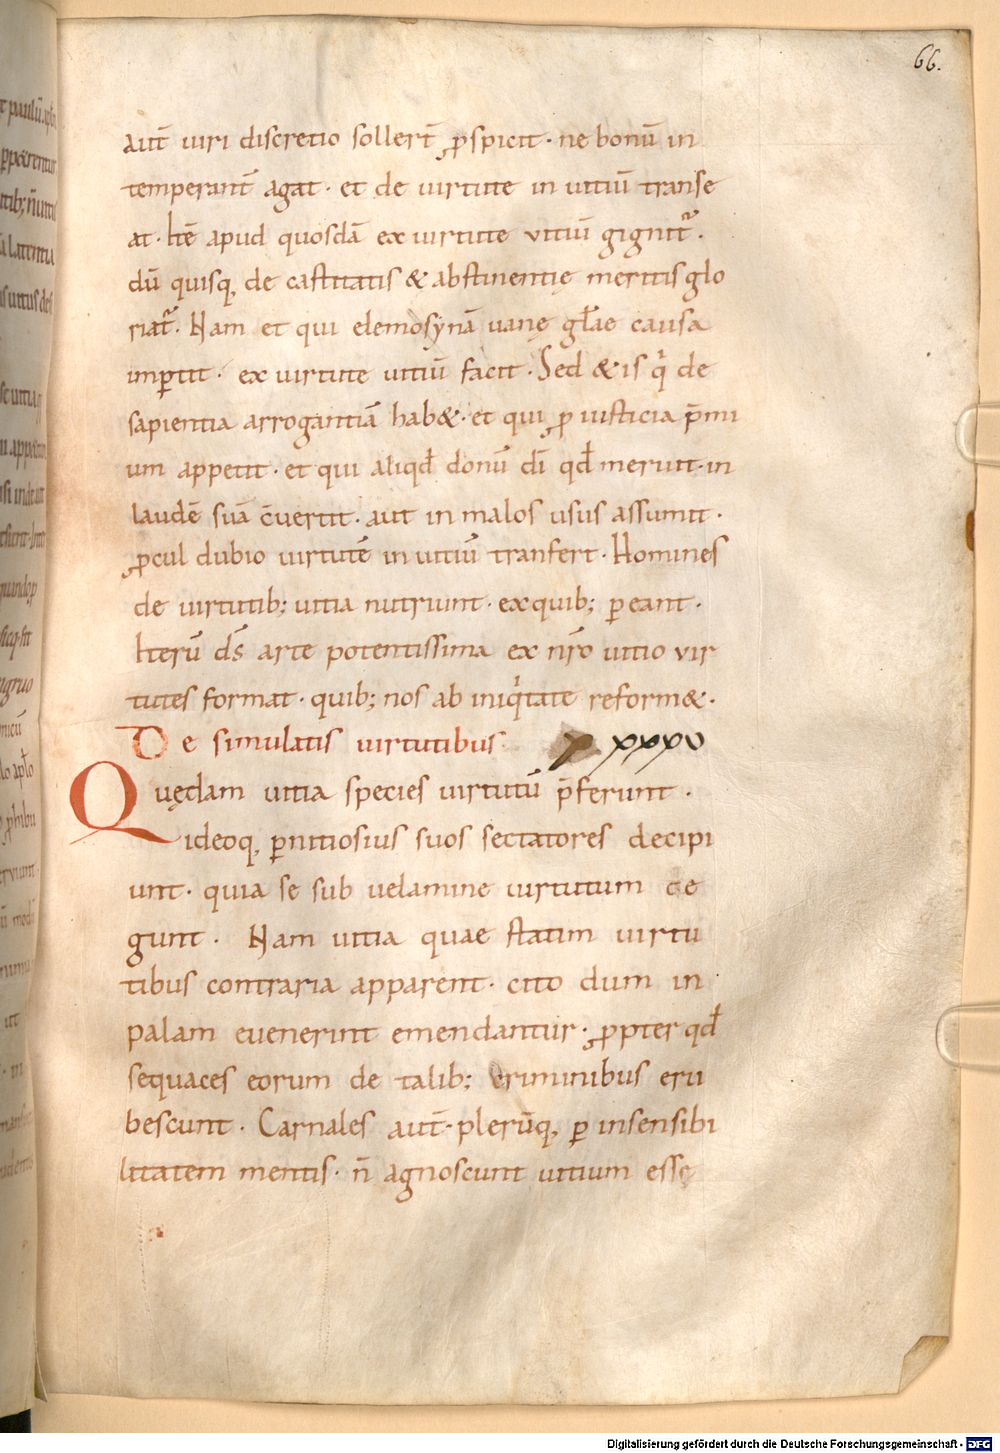 66.
aut̄ uiri discretio sollert̄ ꝓspicit · ne bonū in
temperant̄ agat · et de uirtute in uitiū transe
at · Itē apud quosdā ex uirtute vitiū gignit᷑ ·
dū quisq, de castitatis & abstinentię meritis glo
riat᷑ · Nam et qui elemosynā uanę gl̄ae causa
imꝑtit · ex uirtute uitiū facit · Sed & is q̍ de
sapientia arrogantiā hab& · et qui ꝓ iusticia p̄mi
um appetit · et qui aliqđ donū dī qđ meruit · in
laudē suā c̄uertit · aut in malos usus assumit ·
ꝓcul dubio uirtutē in uitiū tranfert · Homines
de uirtutib; uitia nutriunt · ex quib; ꝑeant ·
Iterū d̄s arte potentissima ex nr̄o uitio vir
tutes format · quib; nos ab iniq̍tate reform& ·
De simulatis uirtutibus xxxv
Quędam uitia species uirtutū p̄ferunt ·
ideoq, ꝑnitiosius suos sectatores decipi
unt · quia se sub uelamine uirtutum te
gunt · Nam uitia quae statim uirtu
tibus contraria apparent · cito dum in
palam euenerint emendantur · ꝓpter qđ
sequaces eorum de talib; criminibus eru
bescunt · Carnales aut̄ · plerūq, ꝑ insensibi
litatem mentis · n̄ agnoscunt uitium esse
Digitalisierung gefördert durch die Deutsche Forschungsgemeinschaft - DFG